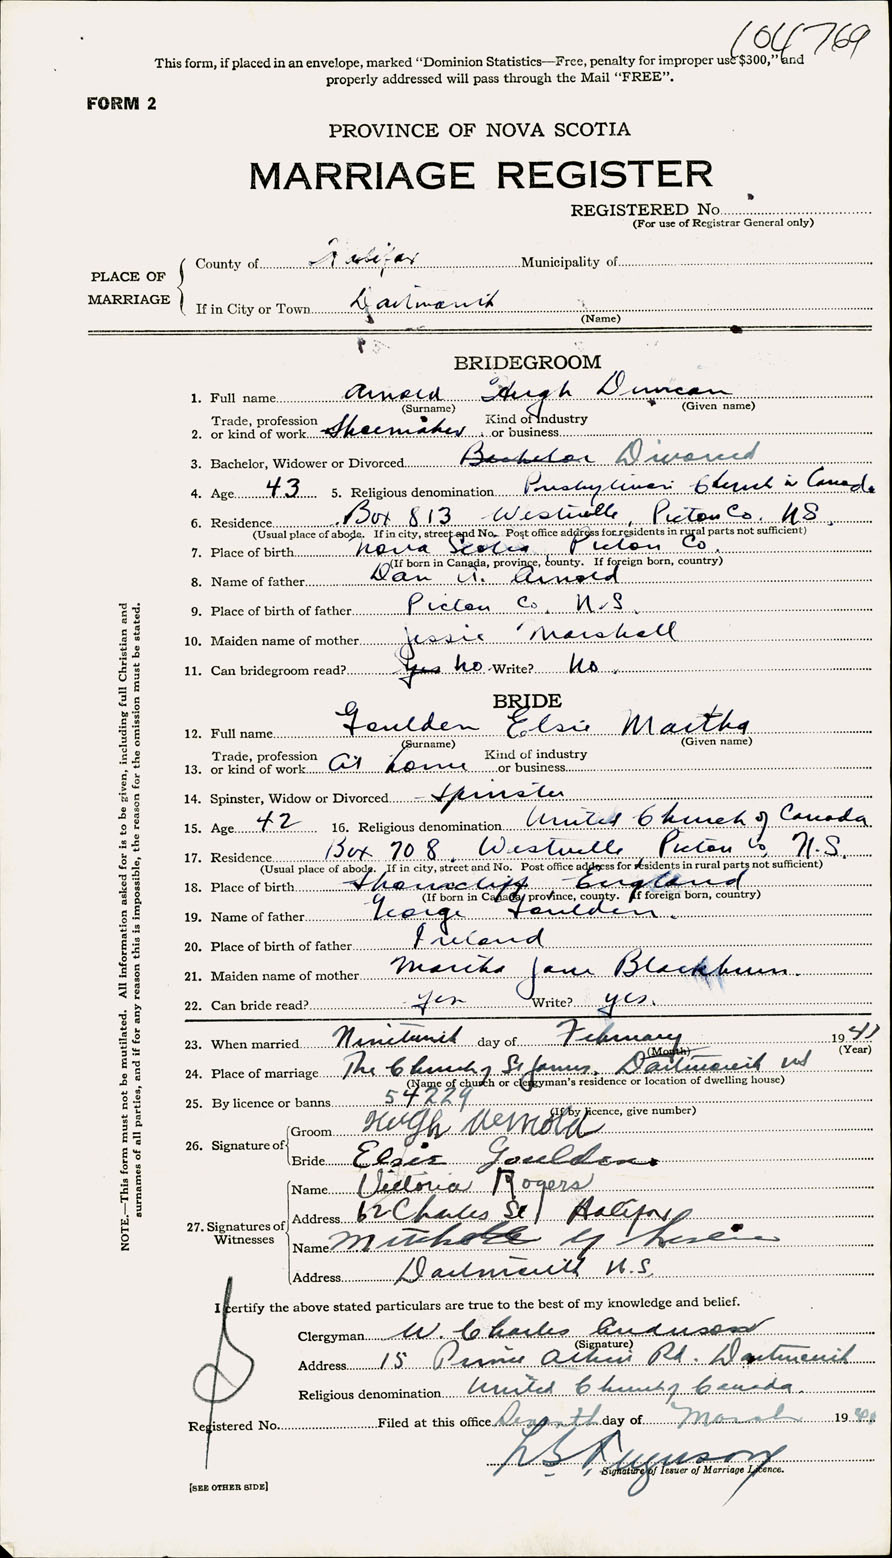 104769
This form, if placed in an envelope, marked "Dominion Statistics—Free, penalty for improper use $300," and
properly addressed will pass through the Mail "FREE".
FORM 2
PROVINCE OF NOVA SCOTIA
MARRIAGE REGISTER
REGISTERED No.
(For use of Registrar General only)
PLACE OF MARRIAGE
County of Halifax Municipality of
If in City or Town Dartmouth
(Name)
BRIDEGROOM
1. Full name Arnold Hugh Duncan
(Surname) (Given name)
2. Trade, profession or kind of work Shoemaker Kind of industry or business
3. Bachelor, Widower or Divorced Bachelor Divorced
4. Age 43 5. Religious denomination Presbyterian Church in Canada
6. Residence Box 813 Westville, Pictou Co. N.S.
(Usual place of abode. If in city, street and No. Post office address for residents in rural parts not sufficient)
7. Place of birth Nova Scotia Pictou Co.
(If born in Canada, province, county. If foreign born, country)
8. Name of father Dan A. Arnold
9. Place of birth of father Pictou Co. N.S.
10. Maiden name of mother Jessie Marshall
11. Can bridegroom read? Yes No Write? No.
BRIDE
12. Full name Goulden Elsie Martha
(Surname) (Given name)
13. Trade, profession or kind of work At home Kind of industry or business
14. Spinster, Widow or Divorced Spinster
15. Age 42 16. Religious denomination United Church of Canada
17. Residence Box 708, Westville Pictou Co, N.S.
(Usual place of abode. If in city, street and No. Post office address for residents in rural parts not sufficient)
18. Place of birth Shorncliffe England
(If born in Canada, province, county. If foreign born, country)
19. Name of father George Goulden.
20. Place of birth of father Ireland
21. Maiden name of mother Martha Jane Blackburn.
22. Can bride read? Yes Write? yes.
23. When married Nineteenth day of February 1941
(Month) (Year)
24. Place of marriage The Church of St James. Dartmouth NS
(Name of church or clergyman's residence or location of dwelling house)
25. By licence or banns 54229
(If by licence, give number)
26. Signature of
Groom Hugh Arnold
Bride Elsie Goulden.
27. Signatures of Witnesses
Name Victoria Rogers
Address 62 Charles St Halifax
Name Leslie
Address Dartmouth N.S.
I certify the above stated particulars are true to the best of my knowledge and belief.
Clergyman W. Charles Anderson
(Signature)
Address 15 Prince Rd. Dartmouth
Religious denomination United Church of Canada.
Registered No. Filed at this office Seventh day of March 19
Ferguson
Signature of Issuer of Marriage Licence.
[SEE OTHER SIDE]
NOTE.—This form must not be mutilated. All information asked for is to be given, including full Christian and
surnames of all parties, and if for any reason this is impossible, the reason for the omission must be stated.